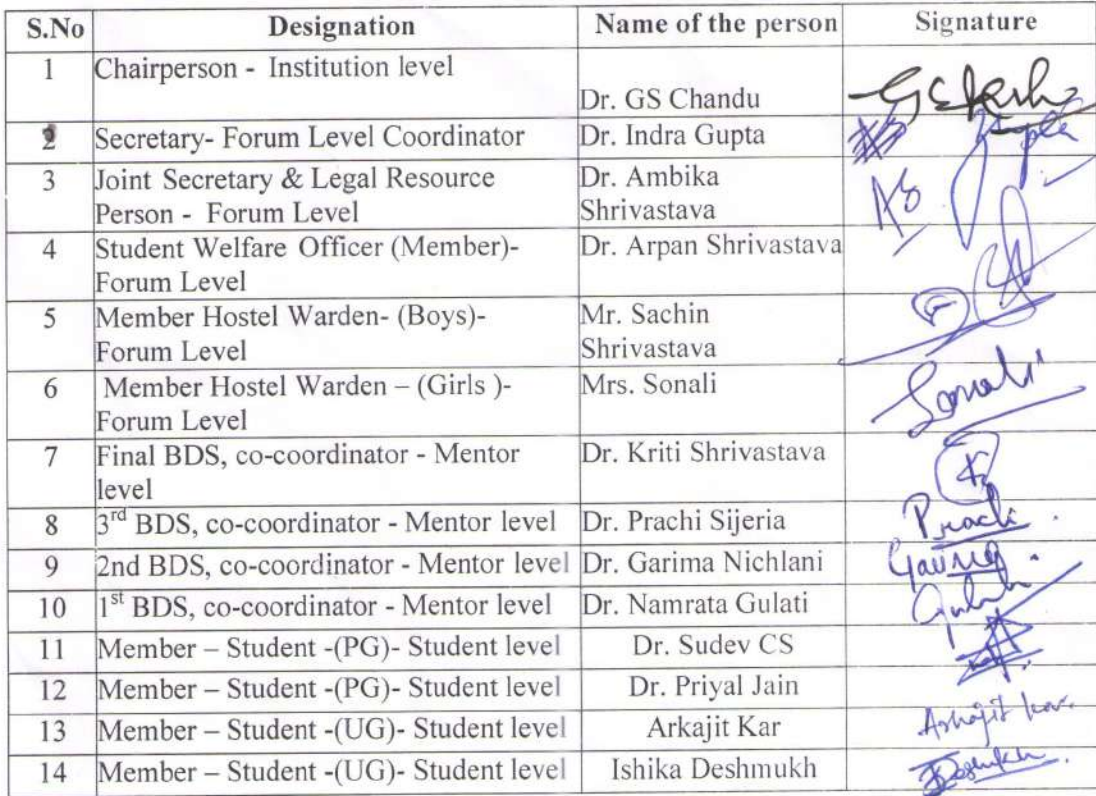 S.No Designation Name of the person Signature
1 Chairperson - Institution level
Dr. GS Chandu
2 Secretary- Forum Level Coordinator Dr. Indra Gupta
3 Joint Secretary & Legal Resource Dr. Ambika
Person - Forum Level Shrivastava
AS
4 Student Welfare Officer (Member)- Dr. Arpan Shrivastava
Forum Level
5 Member Hostel Warden- (Boys)- Mr. Sachin
Forum Level Shrivastava
6 Member Hostel Warden – (Girls )- Mrs. Sonali Sonali
Forum Level
7 Final BDS, co-coordinator - Mentor Dr. Kriti Shrivastava
level
8 3rd BDS, co-coordinator - Mentor level Dr. Prachi Sijeria Prachi
9 2nd BDS, co-coordinator - Mentor level Dr. Garima Nichlani
10 1st BDS, co-coordinator - Mentor level Dr. Namrata Gulati
11 Member – Student -(PG)- Student level Dr. Sudev CS
12 Member – Student -(PG)- Student level Dr. Priyal Jain
13 Member – Student -(UG)- Student level Arkajit Kar Arkajit Kar.
14 Member – Student -(UG)- Student level Ishika Deshmukh